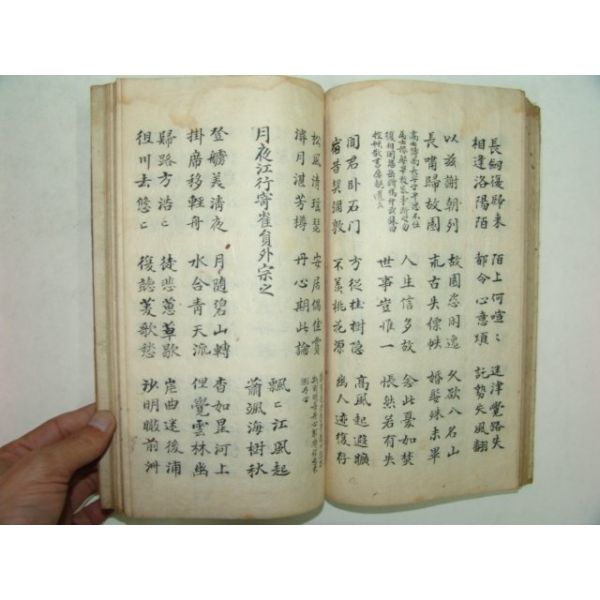 長劍復歸来 陌上何喧〻 迷津覺路失
相逢洛陽陌 都令心意煩 託勢失風翻
以茲謝朝列 故園恣閑逸 久欲入名山
長嘯歸故園 求古失縹帙 婚娶殊未畢
人生信多故 念此憂如焚
世事豈惟一 悵然若有失
聞君卧石门 方從桂樹隐 高風起遐曠
宿昔契彌敦 不羡桃花源 幽人迹復存
松風清瑤瑟 安居偶佳賞
月湛芳樽 丹心期此論
月夜江行寄崔員外宗之
飄〻江風起
蕭颯海樹秋
登艫美清夜 月隨碧山轉 杳如星河上
掛席移輕舟 水合青天流 但覺雲林幽
歸路方浩〻 徒悲蕙草歇 岸曲迷後浦
徂川去悠〻 復聽菱歌愁 沙明瞰前洲